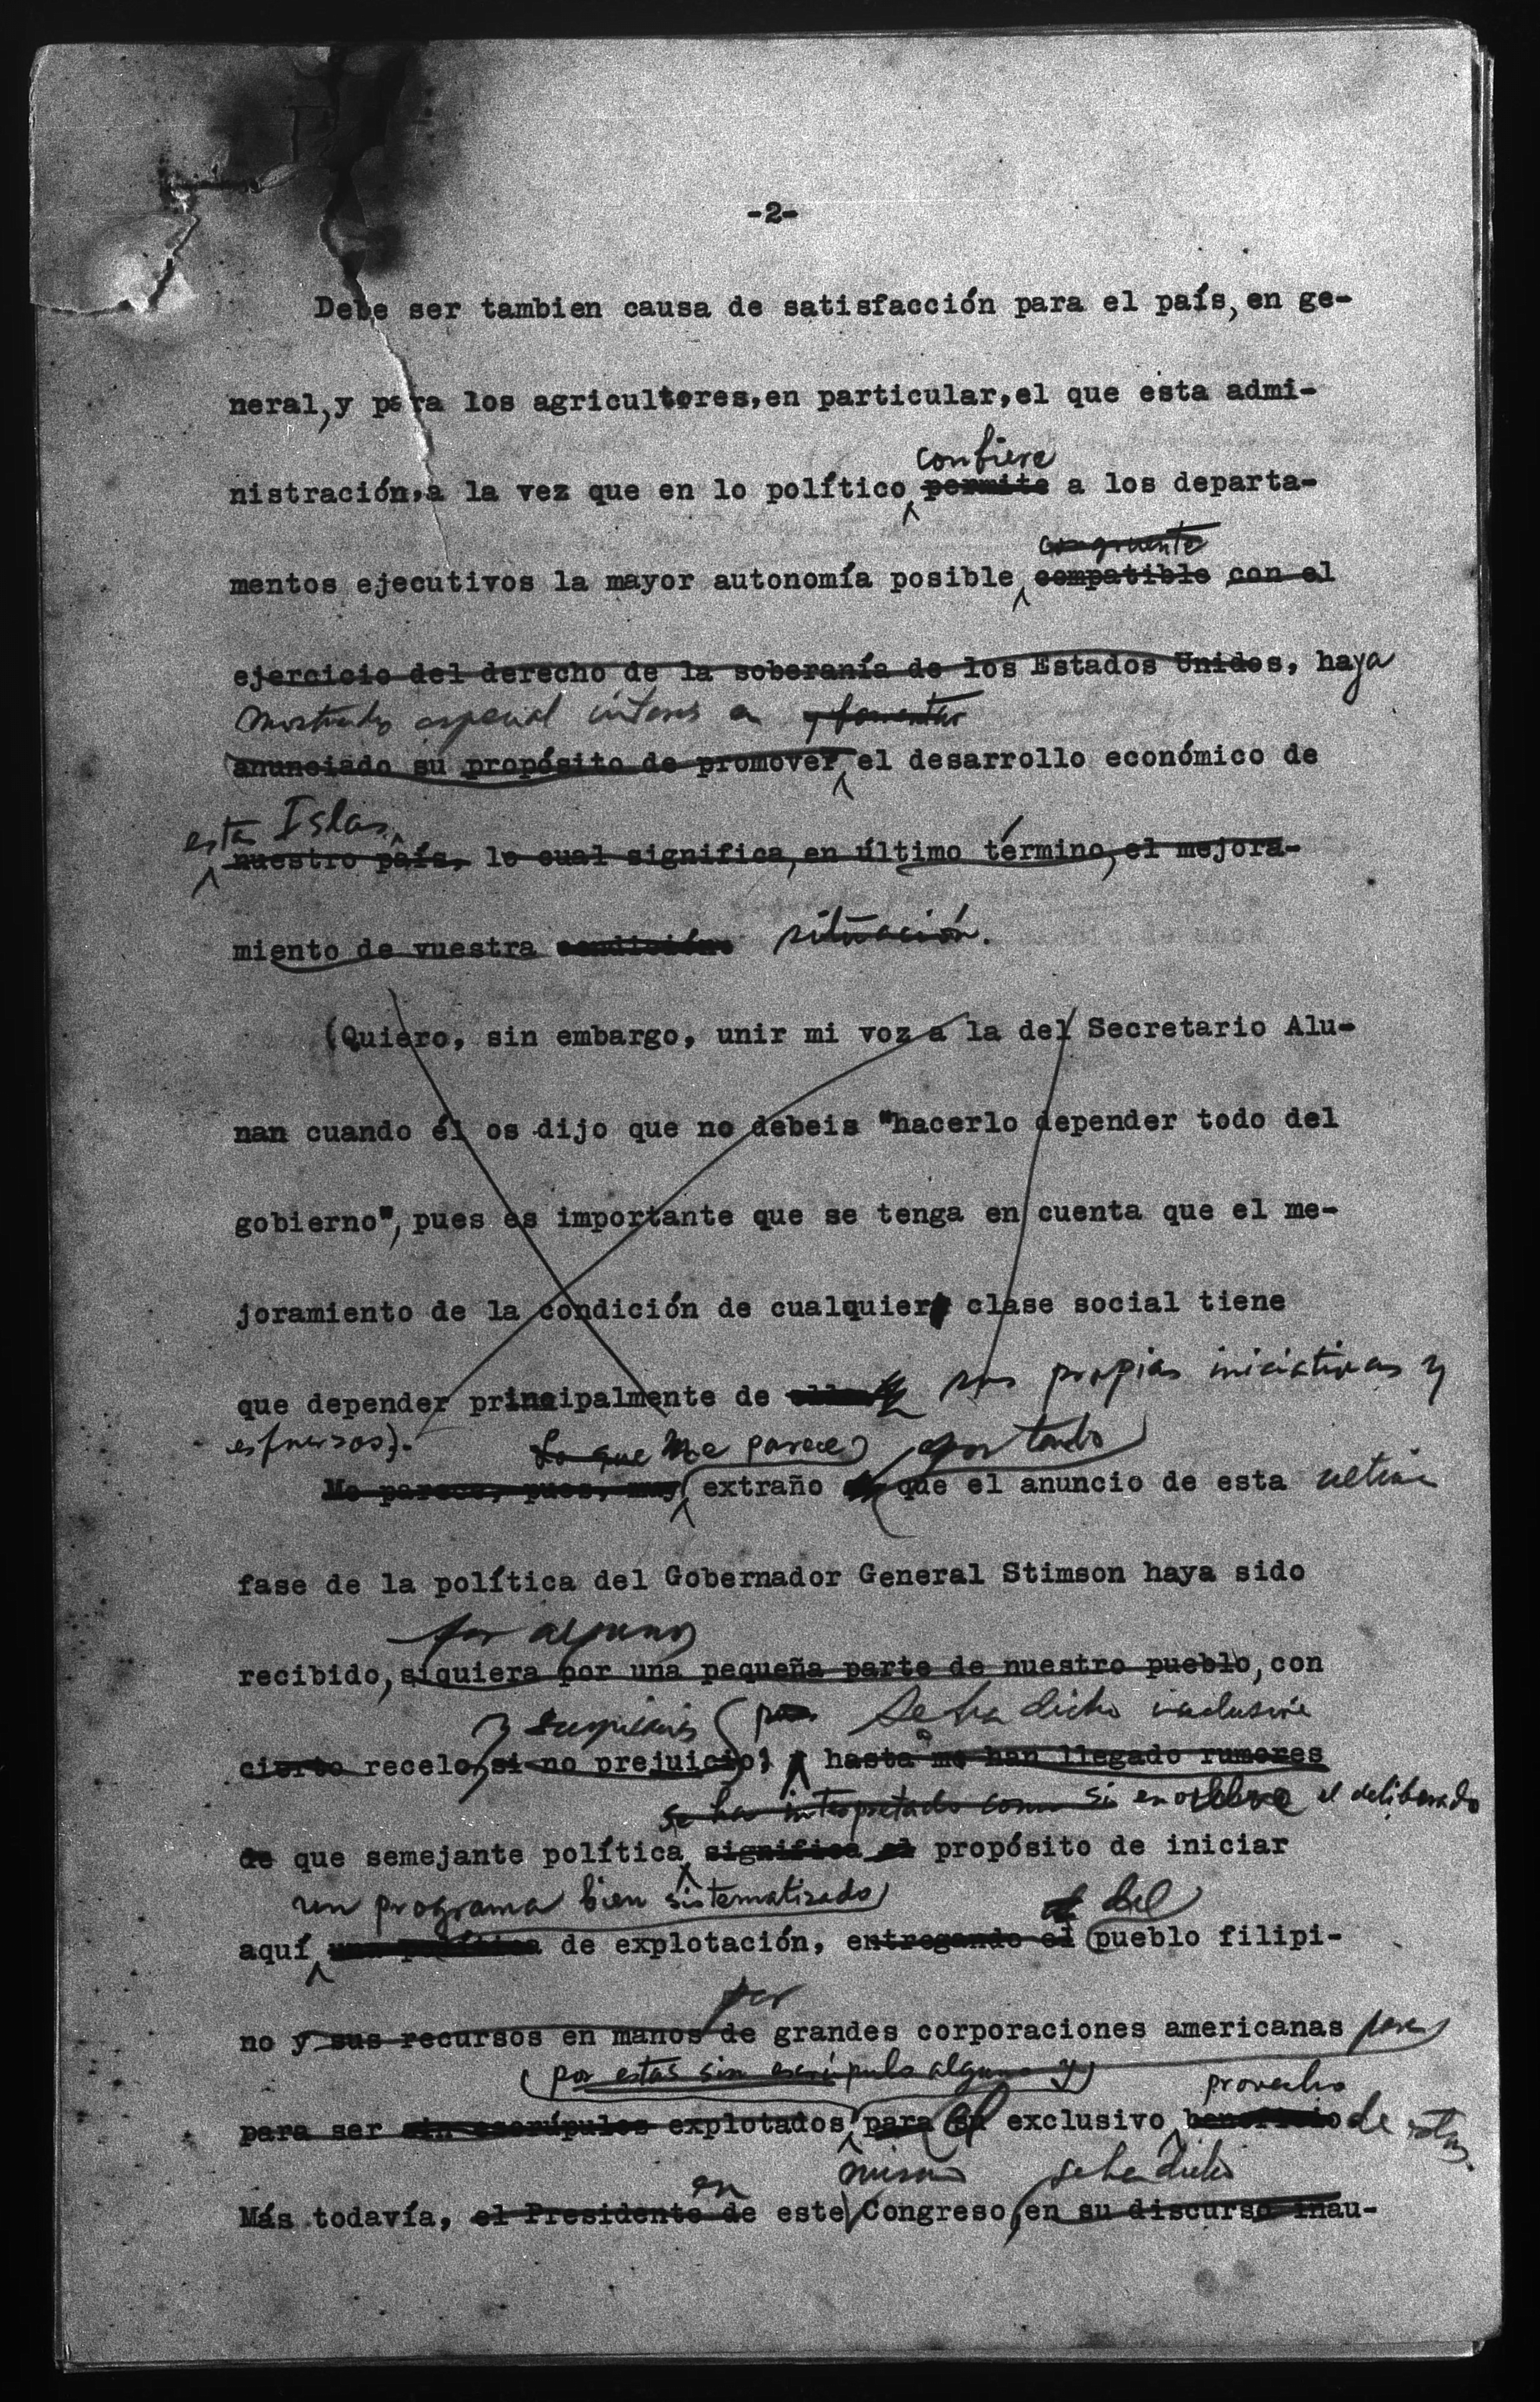 -2-
Debe ser tambien causa de satisfacción para el país, en ge-
neral, y para los agricultores, en particular, el que esta admi-
confiere
nistración, a la vez que en lo político permite a los departa-
congruente
mentos ejecutivos la mayor autonomía posible compatible con el
ejercicio del derecho de la soberanía de los Estados Unidos, haya
mostrado especial interes en y fomentar
anunciado su propósito de promover el desarrollo económico de
estas Islas.
nuestro país, lo cual significa, en último término, el mejora-
miento de vuestra condición situación.
(Quiero, sin embargo, unir mi voz a la del Secretario Alu-
nan cuando él os dijo que no debeis "hacerlo depender todo del
gobierno", pues es importante que se tenga en cuenta que el me-
joramiento de la condición de cualquier clase social tiene
que depender principalmente de sus propias iniciativas y
esfuerzos).
Lo que Me parece por tanto
Me parece, pues, muy extraño que el anuncio de esta ultima
fase de la política del Gobernador General Stimson haya sido
por algunos
recibido, siquiera por una pequeña parte de nuestro pueblo, con
y suspicacia pues Se ha dicho inclusive
cierto recelo, si no prejuicio; y hasta me han llegado rumores
se ha interpretado como si envolviera el deliberado
de que semejante política significa el propósito de iniciar
un programa bien sistematizado
el del
aquí una política de explotación, entregando el pueblo filipi-
por
no y sus recursos en manos de grandes corporaciones americanas para
(por estas sin escrúpulo alguno y)
provecho
para ser sin escrúpulos explotados para su el exclusivo beneficio de estas.
en mismo se ha dicho
Más todavía, el Presidente de este Congreso, en su discurso inau-